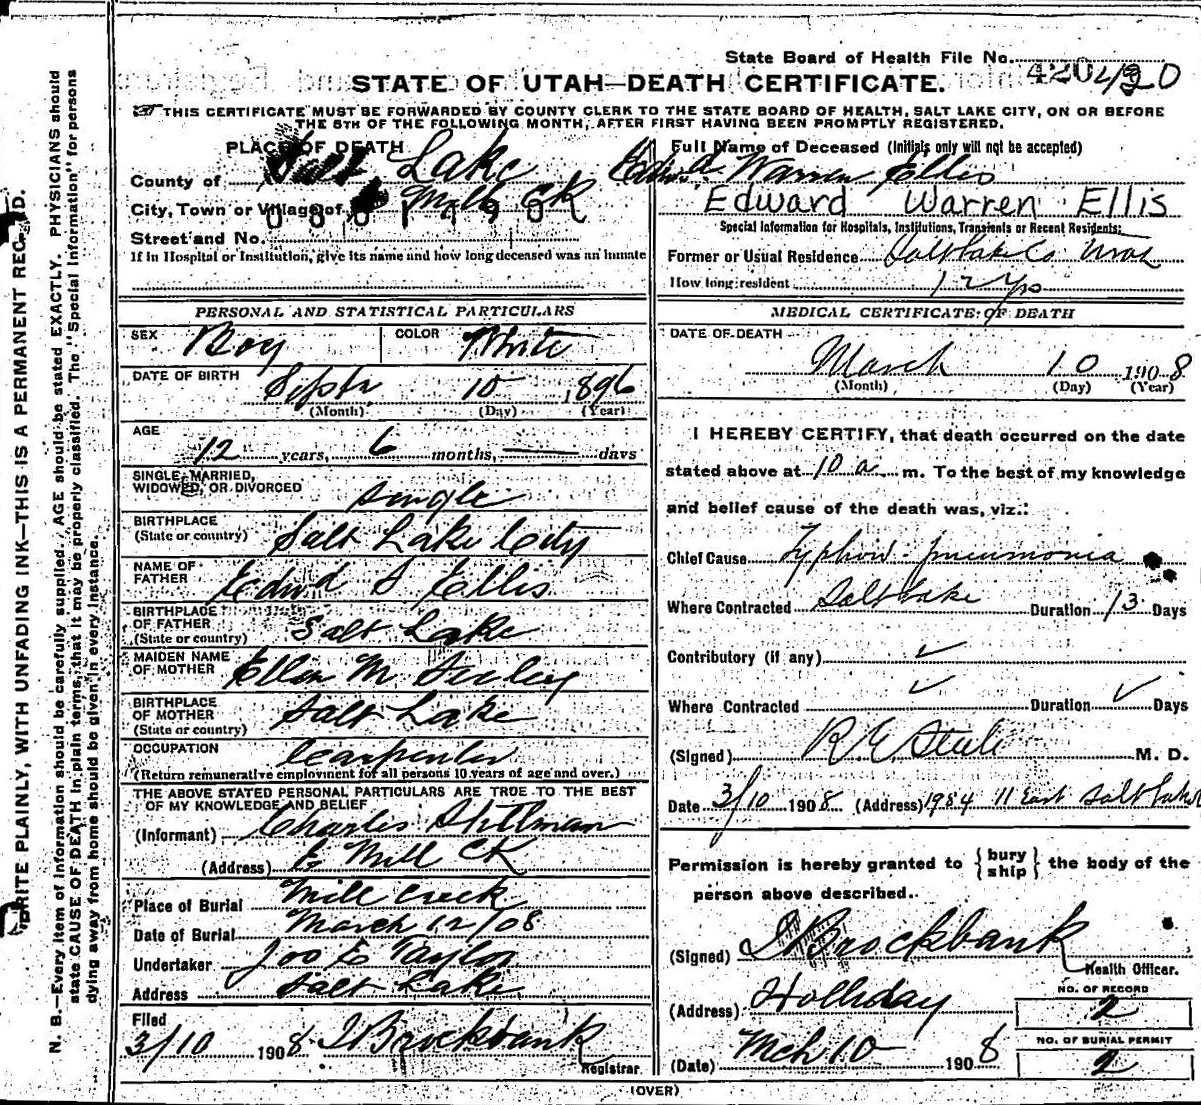 State Board of Health File No.
STATE OF UTAH—DEATH CERTIFICATE.
THIS CERTIFICATE MUST BE FORWARDED BY COUNTY CLERK TO THE STATE BOARD OF HEALTH, SALT LAKE CITY, ON OR BEFORE
THE 5TH OF THE FOLLOWING MONTH, AFTER FIRST HAVING BEEN PROMPTLY REGISTERED.
PLACE OF DEATH
County of Salt Lake
City, Town or Village of Mill Ck
Street and No.
If in Hospital or Institution, give its name and how long deceased was an inmate
Full Name of Deceased (Initials only will not be accepted)
Warren Ellis
Edward Warren Ellis
Special Information for Hospitals, Institutions, Transients or Recent Residents:
Former or Usual Residence Salt Lake Co Utah
How long resident 12 yrs
PERSONAL AND STATISTICAL PARTICULARS
SEX Boy COLOR White
DATE OF BIRTH Septr 10 1896
(Month) (Day) (Year)
AGE
12 years, 6 months, — days
SINGLE, MARRIED,
WIDOWED, OR DIVORCED Single
BIRTHPLACE
(State or country) Salt Lake City
NAME OF
FATHER Edwd S Ellis
BIRTHPLACE
OF FATHER
(State or country) Salt Lake
MAIDEN NAME
OF MOTHER Ellen M
BIRTHPLACE
OF MOTHER
(State or country) Salt Lake
OCCUPATION Carpenter
(Return remunerative employment for all persons 10 years of age and over.)
THE ABOVE STATED PERSONAL PARTICULARS ARE TRUE TO THE BEST
OF MY KNOWLEDGE AND BELIEF
(Informant) Charles Stillman
(Address) E Mill Ck
Place of Burial Mill Creek
Date of Burial March 12/08
Undertaker Jos E Taylor
Address Salt Lake
Filed
3/10 1908 J Brockbank
Registrar
MEDICAL CERTIFICATE OF DEATH
DATE OF DEATH
March 10 1908
(Month) (Day) (Year)
I HEREBY CERTIFY, that death occurred on the date
stated above at 10 a m. To the best of my knowledge
and belief cause of the death was, viz.:
Chief Cause Typhoid-pneumonia
Where Contracted Salt Lake Duration 13 Days
Contributory (if any) ✓
Where Contracted ✓ Duration ✓ Days
(Signed) R E Steele M. D.
Date 3/10 1908 (Address) 1984 11 East Salt Lake
Permission is hereby granted to { bury ship } the body of the
person above described.
(Signed) J Brockbank
Health Officer.
(Address) Holliday
NO. OF RECORD
2
(Date) Mch 10 1908
NO. OF BURIAL PERMIT
2
(OVER)
WRITE PLAINLY, WITH UNFADING INK—THIS IS A PERMANENT RECORD.
N. B.—Every item of information should be carefully supplied. AGE should be stated EXACTLY. PHYSICIANS should
state CAUSE OF DEATH in plain terms, that it may be properly classified. The "Special Information" for persons
dying away from home should be given in every instance.